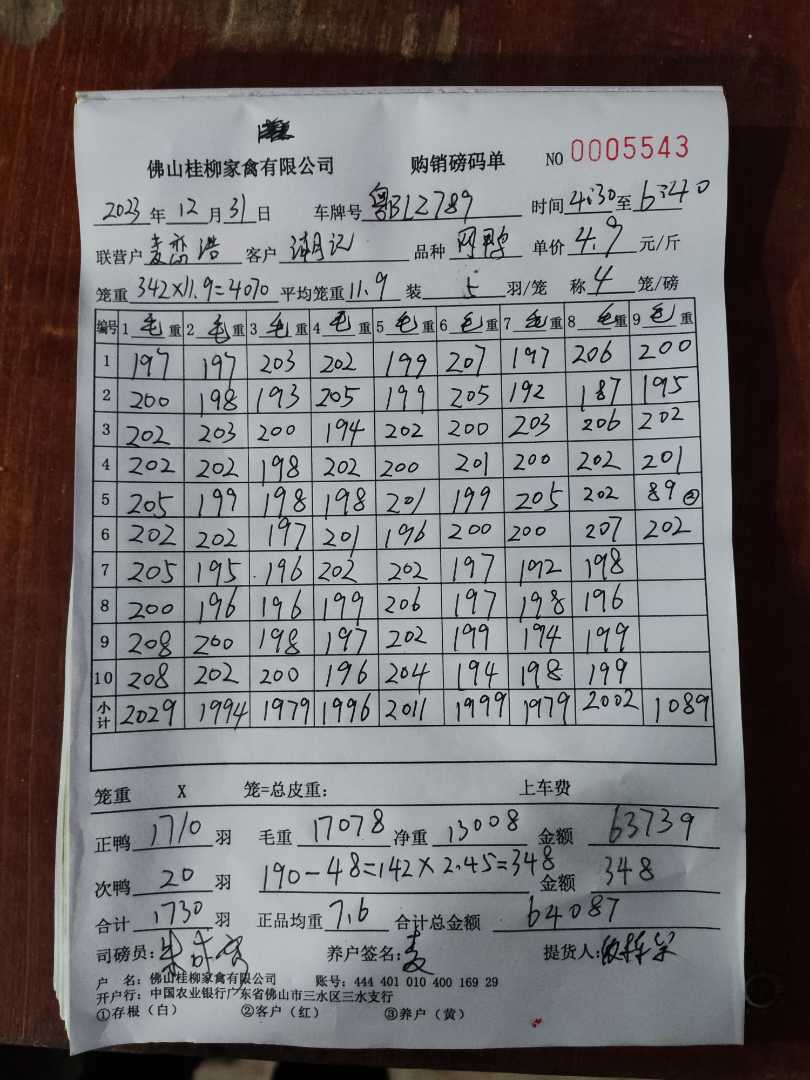 佛山桂柳家禽有限公司 购销磅码单 NO 0005543
2023年 12月 31日 车牌号 粤BLZ789 时间 4:30 至 6:40
联营户 麦恋浩 客户 潮记 品种 冈鸭 单价 4.9 元/斤
笼重 342×11.9=4070 平均笼重 11.9 装 5 羽/笼 称 4 笼/磅
编号 1毛重 2毛重 3毛重 4毛重 5毛重 6毛重 7毛重 8毛重 9毛重
1 197 197 203 202 199 207 197 206 200
2 200 198 193 205 199 205 192 187 195
3 202 203 200 194 202 200 203 206 202
4 202 202 198 202 200 201 200 202 201
5 205 199 198 198 201 199 205 202 89②
6 202 202 197 201 196 200 200 207 202
7 205 195 196 202 202 197 192 198
8 200 196 196 199 206 197 198 196
9 208 200 198 197 202 199 194 199
10 208 202 200 196 204 194 198 199
小计 2029 1994 1979 1996 2011 1999 1979 2002 1089
笼重 X 笼=总皮重: 上车费
正鸭 1710 羽 毛重 17078 净重 13008 金额 63739
次鸭 20 羽 190-48=142×2.45=348 金额 348
合计 1730 羽 正品均重 7.6 合计总金额 64087
司磅员: 养户签名: 麦 提货人:
户 名: 佛山桂柳家禽有限公司 账号: 444 401 010 400 169 29
开户行: 中国农业银行广东省佛山市三水区三水支行
①存根（白） ②客户（红） ③养户（黄）